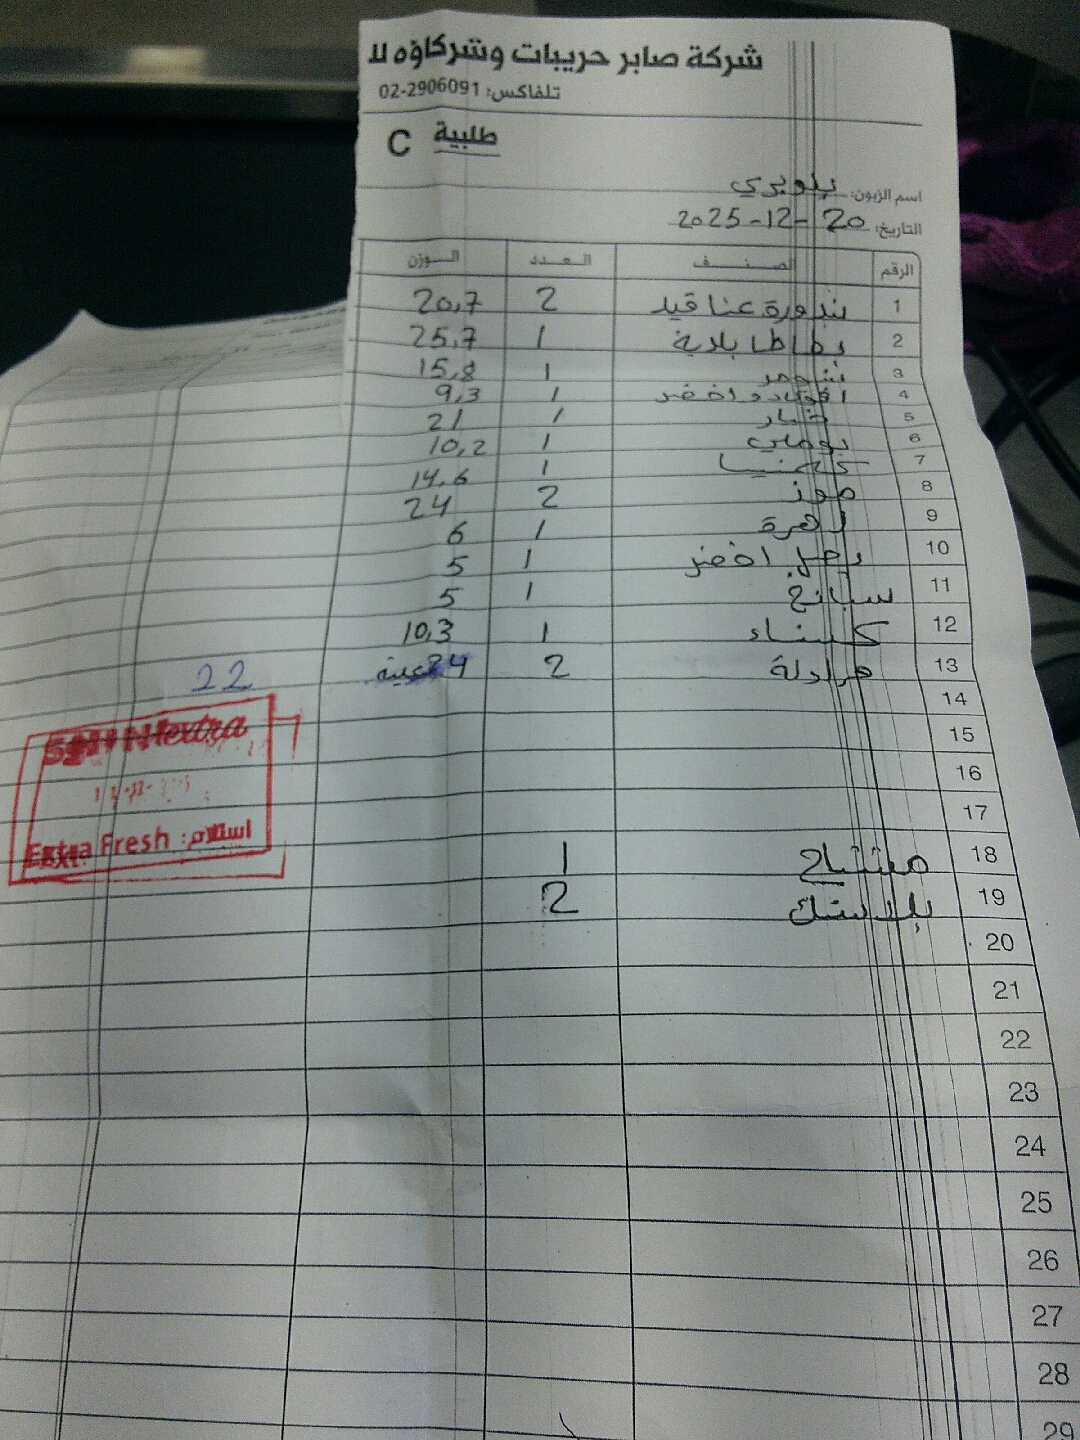 شركة صابر حريبات وشركاؤه لا
تلفاكس: 02-2906091
طلبية C
اسم الزبون:
التاريخ: 20-12-2025
الرقم الصنف العدد الوزن
1 بندورة عناقيد 2 20,7
2 بطاطا بلدية 1 25,7
3 1 15,8
4 افوكادو اخضر 1 9,3
5 خيار 1 21
6 بوملي 1 10,2
7 1 14,6
8 موز 2 24
9 زهرة 1 6
10 بصل اخضر 1 5
11 سبانخ 1 5
12 كستناء 1 10,3
13 2 22
14
15
16
17
18 مشتاح 1
19 بلاستك 2
20
21
22
23
24
25
26
27
28
29
extra
استلام: Extra Fresh